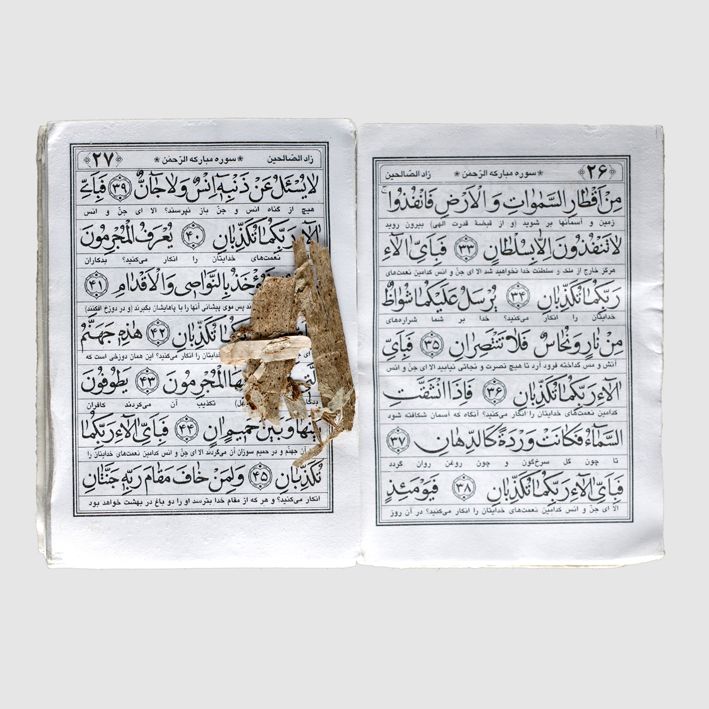 ۲۶ * سوره مباركه الرّحمن * زاد الصّالحين
مِنْ اَقْطَارِ السَّمٰوَاتِ وَ الْاَرْضِ فَانْفُذُوا
زمین و آسمانها بر شوید (و از قبضهٔ قدرت الهی) بیرون روید
لاٰ تَنْفُذُونَ اِلاّٰ بِسُلْطَانٍ ﴿۳۳﴾ فَبِاَيِّ اٰلاٰءِ
هرگز خارج از ملک و سلطنت خدا نخواهید شد الا ای جنّ و انس کدامین نعمت‌های
رَبِّكُمَا تُكَذِّبَانِ ﴿۳۴﴾ يُرْسَلُ عَلَيْكُمَا شُوَاظٌ
خدایتان را انکار می‌کنید؟ خدا بر شما شراره‌های
مِنْ نَارٍ وَ نُحَاسٌ فَلاٰ تَنْتَصِرَانِ ﴿۳۵﴾ فَبِاَيِّ
آتش و مس گداخته فرود آرد تا هیچ نصرت و نجاتی نیابید الا ای جنّ و انس
اٰلاٰءِ رَبِّكُمَا تُكَذِّبَانِ ﴿۳۶﴾ فَاِذَا انْشَقَّتِ
کدامین نعمت‌های خدایتان را انکار می‌کنید؟ آنگاه که آسمان شکافته شود
السَّمَاءُ فَكَانَتْ وَرْدَةً كَالدِّهَانِ ﴿۳۷﴾
تا چون گل سرخ‌گون و چون روغن روان گردد
فَبِاَيِّ اٰلاٰءِ رَبِّكُمَا تُكَذِّبَانِ ﴿۳۸﴾ فَيَوْمَئِذٍ
الا ای جنّ و انس کدامین نعمت‌های خدایتان را انکار می‌کنید؟ در آن روز
زاد الصّالحين * سوره مباركه الرّحمن * ۲۷
لاٰ يُسْئَلُ عَنْ ذَنْبِهِ اِنْسٌ وَ لاٰ جَانٌّ ﴿۳۹﴾ فَبِاَيِّ
هیچ از گناه انس و جنّ باز نپرسند؟ الا ای جنّ و انس
اٰلاٰءِ رَبِّكُمَا تُكَذِّبَانِ ﴿۴۰﴾ يُعْرَفُ الْمُجْرِمُونَ
نعمت‌های خدایتان را انکار می‌کنید؟ بدکاران
فَيُؤْخَذُ بِالنَّوَاصِي وَ الْاَقْدَامِ ﴿۴۱﴾
پس موی پیشانی آنها را با پاهایشان بگیرند (و در دوزخ افکنند)
تُكَذِّبَانِ ﴿۴۲﴾ هٰذِهِ جَهَنَّمُ
خدایتان را انکار می‌کنید؟ این همان دوزخی است که
الْمُجْرِمُونَ ﴿۴۳﴾ يَطُوفُونَ
تکذیب آن می‌کردند کافران
وَ بَيْنَ حَمِيمٍ اٰنٍ ﴿۴۴﴾ فَبِاَيِّ اٰلاٰءِ رَبِّكُمَا
آن جهنّم و در حمیم سوزان آن می‌گردند الا ای جنّ و انس کدامین نعمت‌های خدایتان را
تُكَذِّبَانِ ﴿۴۵﴾ وَ لِمَنْ خَافَ مَقَامَ رَبِّهِ جَنَّتَانِ
انکار می‌کنید؟ و هر که از مقام خدا بترسد او را دو باغ در بهشت خواهد بود